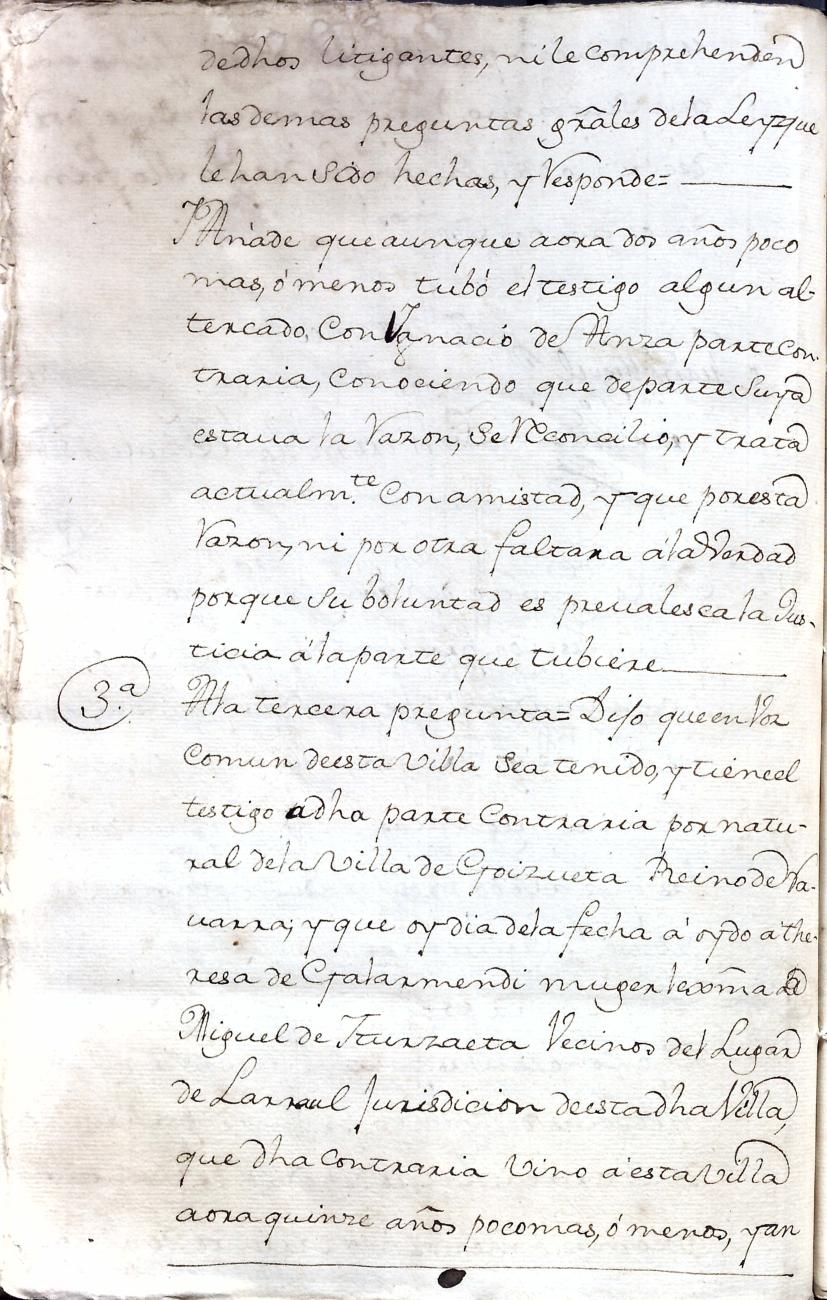 dedhos litigantes, ni le comprehenden
las demas preguntas grãles dela Ley que
le han sido hechas, y Responde=
Añade que aunque aora dos años poco
mas, ó menos tubó el testigo algun al-
tercado Con Ygnacio de Anza parte con-
traria, conociendo que de parte suya
estaua la Razon, se Reconcilio, y trata
actualm.te Con amistad, y que por esta
Razon, ni por otra faltara á la Verdad
porque su boluntad es preualesca la Jus-
ticia á la parte que tubiere
3.a
A la tercera pregunta= Dijo que en Voz
comun de esta Villa sea tenido, y tiene el
testigo adha parte Contraria por natu-
ral dela Villa de Goizueta Reino de Na-
uarra; y que oy dia dela fecha á oydo á the-
resa de Galarmendi muger lexma de
Miguel de Yturzaeta Vecinos del Lugar
de Larraul Jurisdicion de esta dha Villa,
que dha Contraria vino á esta Villa
aora quinze años poco mas, ó menos, y an